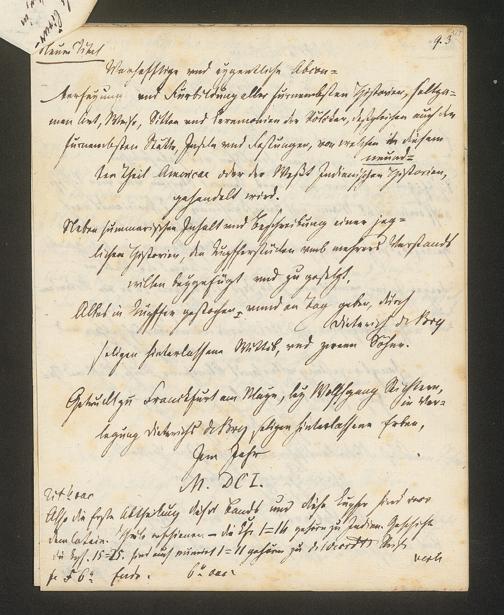 9. 3
Neuer Titel
Warhafftige und eygentliche Abcon-
terfeyung und Fürbildung aller fürnembsten Historien, seltza-
men Art, Weise, Sitten und Ceremonien der Völcker, desgleichen auch der
fürnembsten Stätte, Inseln und Vestungen, von welchen in diesem
neund-
ten Theil Americae oder der West Indianischen Historien,
gehandelt wird.
Neben summarischen Inhalt und Beschreibung einer jeg-
lichen Historien, den Kupfferstücken umb mehrers Verstands
willen beygefügt und zu gesetzt.
Alles in Kupffer gestochen, unnd an Tag geben, durch
Dieterich de Bry
seligen hinterlassene Wittib, und zween Söhne.
Getruckt zu Franckfurt am Mayn, bey Wolffgang Richtern,
in Ver-
legung Dieterichs de Bry seligen hinterlassene Erben,
Im Jahr
M. DCI.
Also die erste Abtheilung dieses Bands und diese Kupfer sind
dem Latein. erschienen. – die 1=14 gehören zu Indien. Geschichte
die 15=25. sind auch numerirt 1=11 gehören zu de Reise
verte